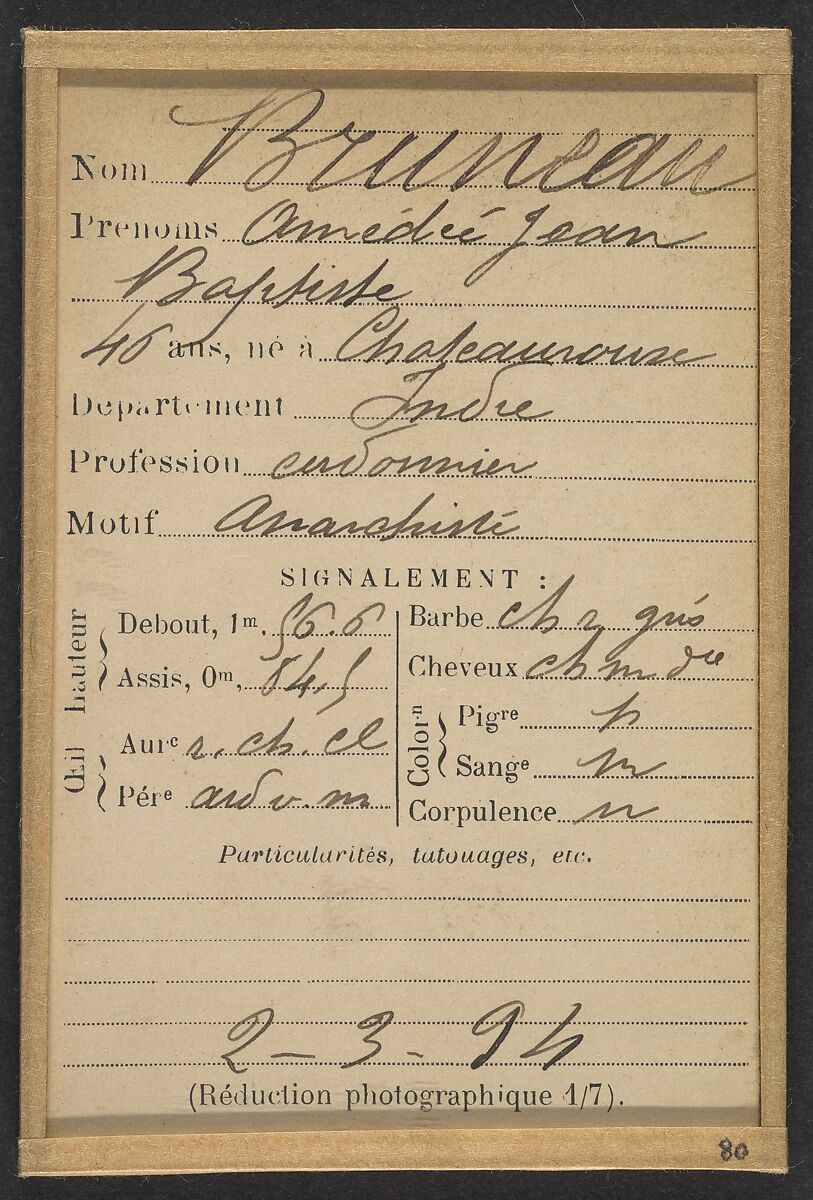 Nom Bruneau
Prénoms Amédée Jean
Baptiste
46 ans, né à Chateauroux
Département Indre
Profession cordonnier
Motif Anarchiste
SIGNALEMENT :
Hauteur
Debout, 1m. 56.6
Assis, 0m, 84,5
Œil
Aure r. ch. cl
Pére ard v. m
Barbe ch r gris
Cheveux ch m dre
Colorn
Pigre p
Sange m
Corpulence n
Particularités, tatouages, etc.
2 - 3 - 94
(Réduction photographique 1/7).
80